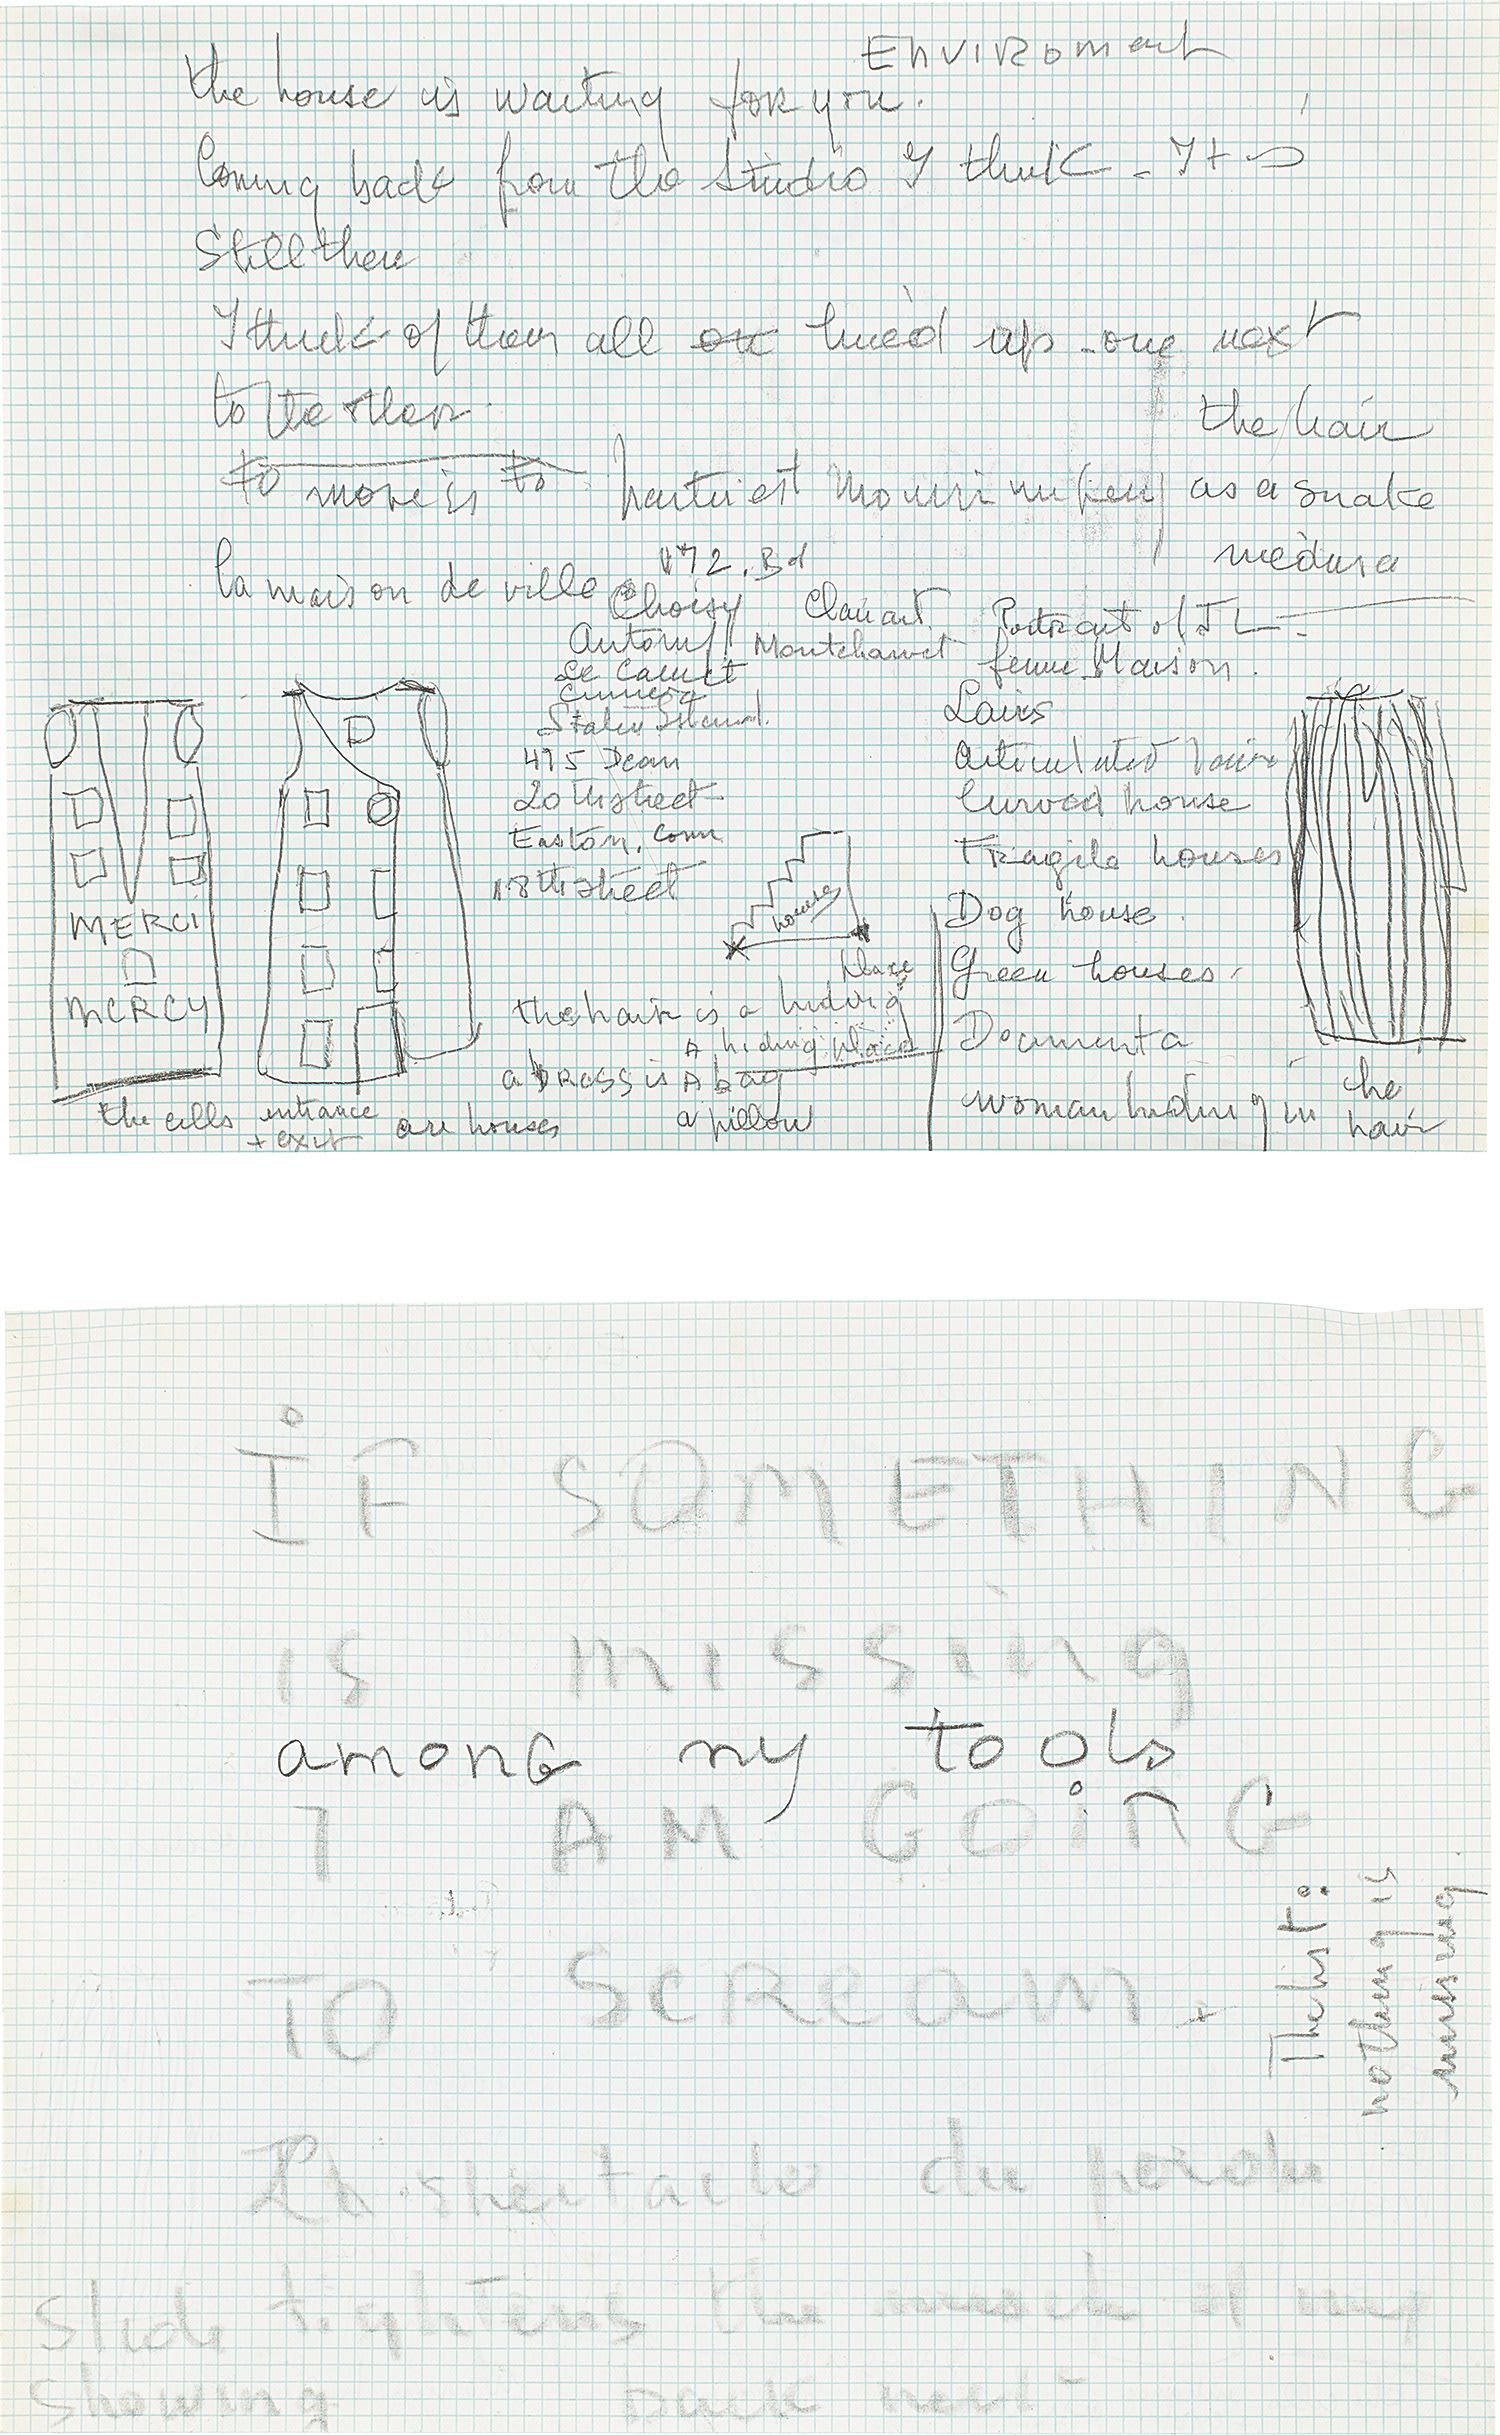 Enviroment
the house is waiting for you.
Coming back from the Studio I think - It
Still there
I think of them all lined up - one next
to the other.
the hair
to move is to
partir est mourir un peu
as a snake
medusa
la maison de ville
172. Bd
Choisy
Clamart
Antony
Montchauvet
Le Cannet
Portrait of JL
femme Maison.
Staten Island.
475 Dean
20th street
Easton, Conn
18th street
Lairs
Articulated lair
Curved house
Fragile houses
Dog house.
Green houses.
Documenta
woman hiding in he
hair
P
MERCI
MERCY
houses
place
the hair is a hiding
A hiding place
a DRESS is A bag
a pillow
the cells
entrance
+ exit
are houses
IF SOMETHING
is missing
among my tools
I AM GOING
TO SCREAM
The list:
nothing is
missing.
Le spectacle du
Slide tightens the of my
Showing back